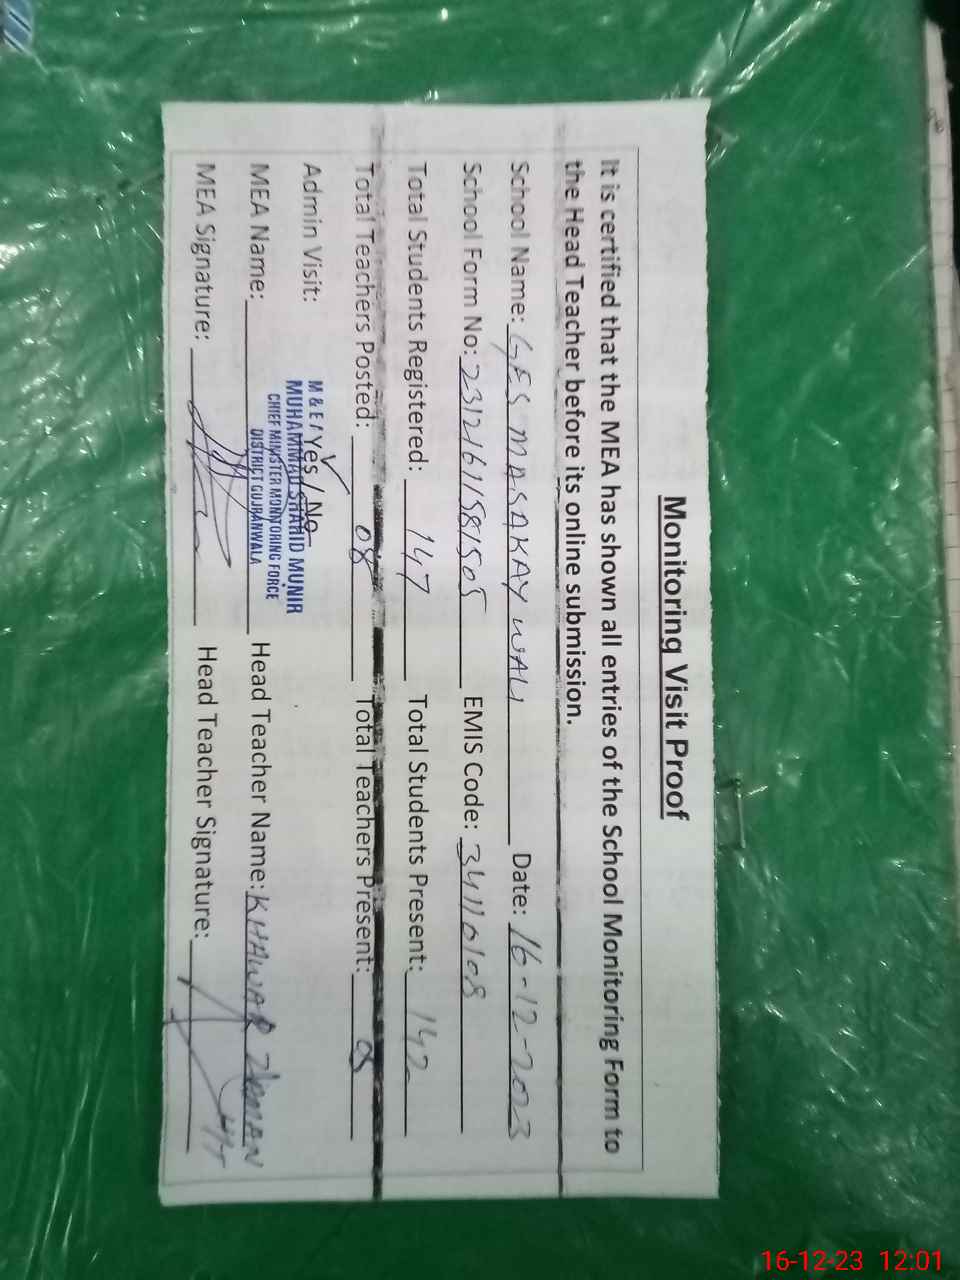 Monitoring Visit Proof
It is certified that the MEA has shown all entries of the School Monitoring Form to
the Head Teacher before its online submission.
School Name: GES MASAKAY WALI Date: 16-12-2023
School Form No: Total Students Registered: 147 Total Students Present: 142
EMIS Code: 34110108
Total Teachers Posted: 08 Total Teachers Present:
Admin Visit: Yes / No
M & E
MUHAMMAD SHAHID MUNIR
CHIEF MINISTER MONITORING FORCE
DISTRICT GUJRANWALA
MEA Name: Head Teacher Name: KHAWAR ZAMAN
MEA Signature: Head Teacher Signature:
16-12-23 12:01